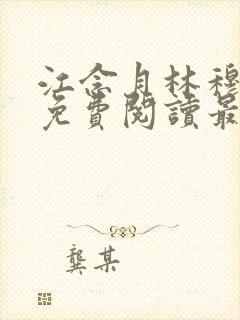 江念月林穆
免費閱讀最
龔某